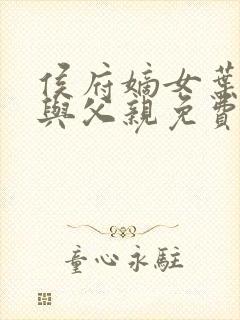 侯府嫡女葉
與父親免費
童心永駐